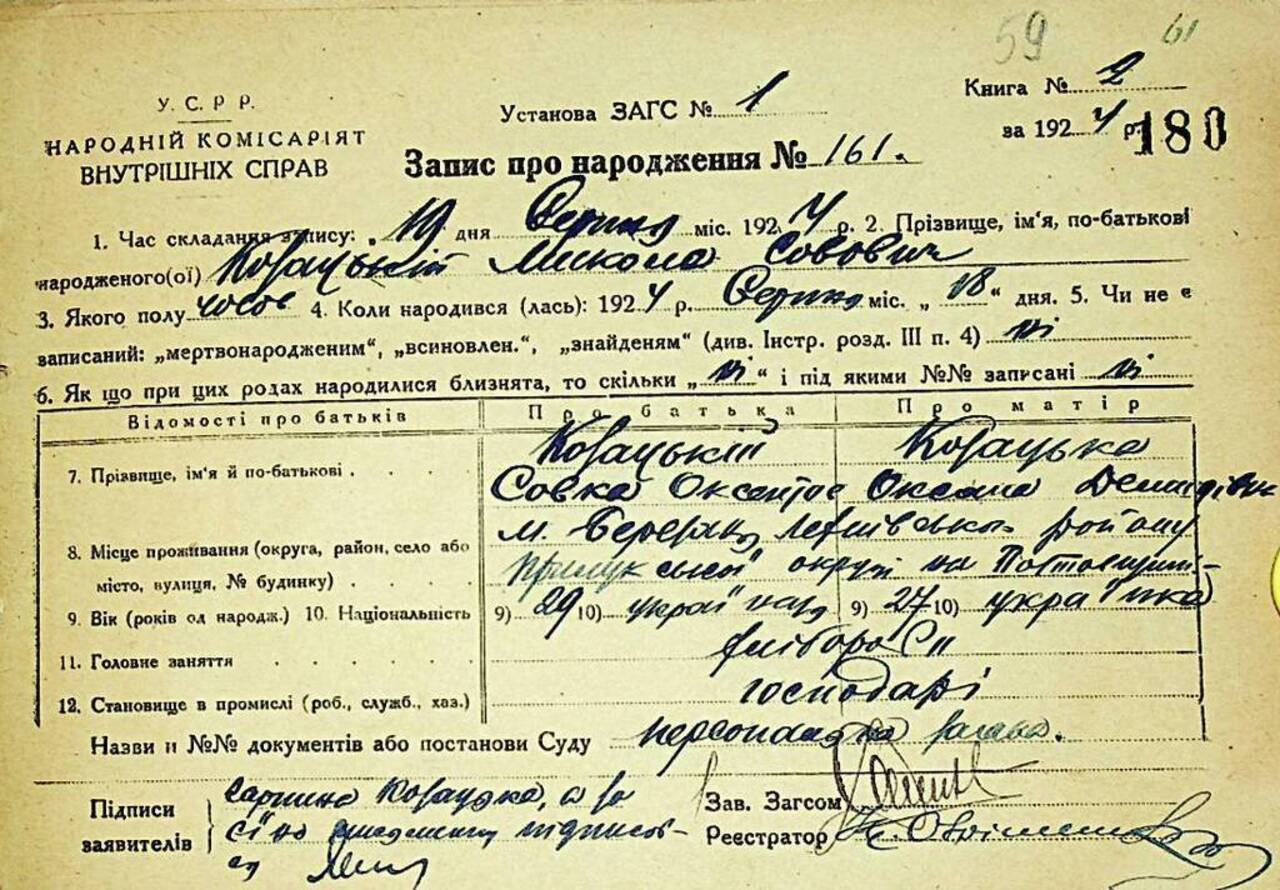 59 61
У. С. Р Р.
НАРОДНІЙ КОМІСАРІЯТ
ВНУТРІШНІХ СПРАВ
Установа ЗАГС № 1
Книга № 2
за 1924 р.
180
Запис про народження № 161.
1. Час складання запису: „ 19 дня Серпня міс. 1924 р. 2. Прізвище, ім'я, по-батькові
народженого(ої) Козацький Микола Совович
3. Якого полу чолов 4. Коли народився (лась): 1924 р. Серпня міс. „ 18 “ дня. 5. Чи не є
записаний: „мертвонародженим“, „всиновлен.“, „знайденям“ (див. Інстр. розд. III п. 4) ні
6. Як що при цих родах народилися близнята, то скільки „ ні “ і під якими №№ записані ні
Відомості про батьків Про батька Про матір
7. Прізвище, ім'я й по-батькові Козацький Козацька
Совка Оксана Демидівна
8. Місце проживання (округа, район, село або м. Березань району
місто, вулиця, № будинку) Прилукської округи на
9. Вік (років од народж.) 10. Національність 9) 29 10) українець 9) 27 10) українка
11. Головне заняття хлібороби
12. Становище в промислі (роб., служб., хаз.) господарі
Назви и №№ документів або постанови Суду персональна заява.
Підписи
заявителів
Козацька, а за
підписов-
Зав. Загсом
Реєстратор